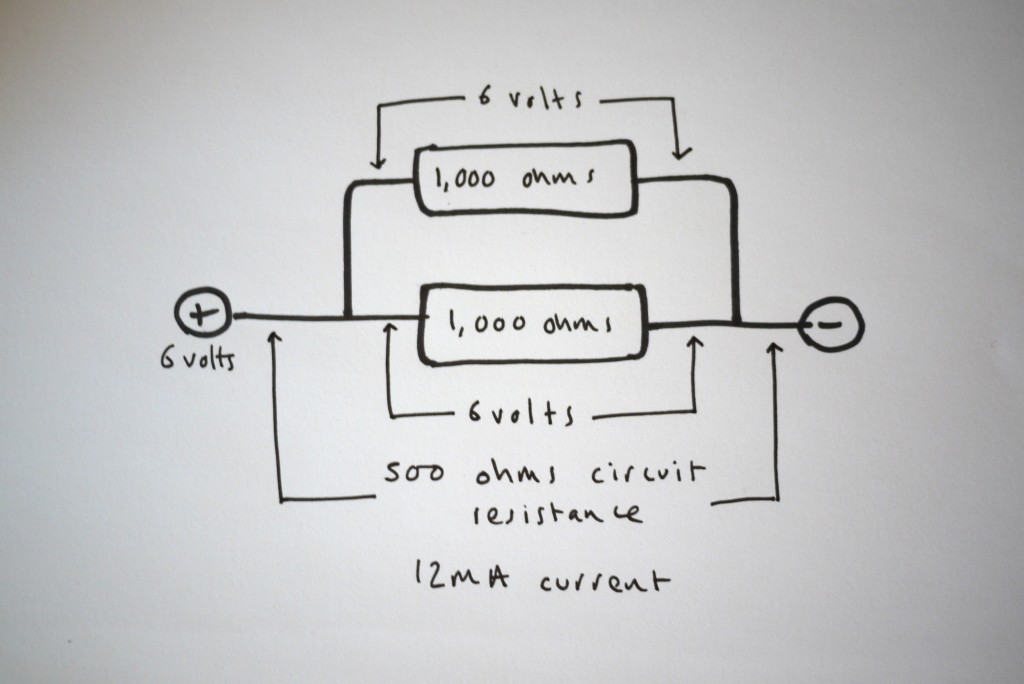 6 volts
1,000 ohms
+
1,000 ohms
-
6 volts
6 volts
500 ohms circuit
resistance
12mA current